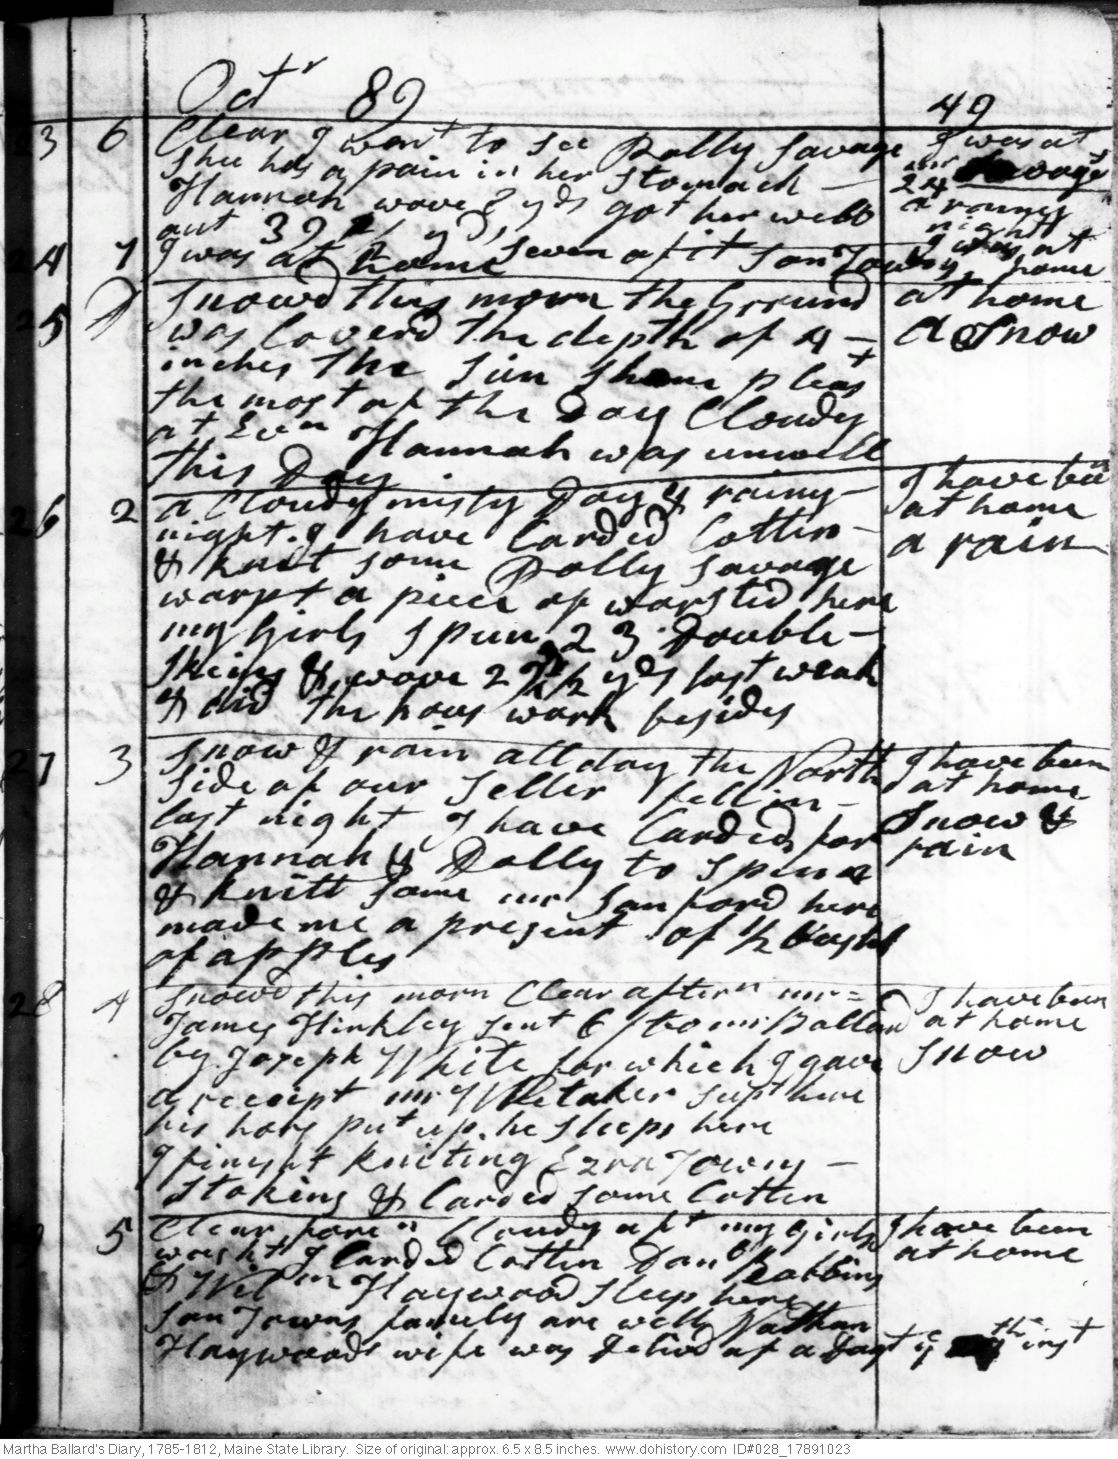 Octr 89 49
23 6 Clear I went to see Polly Savage I was at
shee has a pain in her stomach — mr Savages
Hannah wove 8 yds got her webb 24 a rainy
out 39 1/2 yds, night
24 7 I was at home Seven aft son Towns I was at home
25 Snowd this morn the Ground at home
was Coverd the depth of 4 — a Snow
inches the sun shone pleast
the most of the Day Cloudy
at Evn Hannah was unwell
this Day
26 2 a Cloudy misty Day & rainy — I have been
night. I have Carded Cotten — at home
& knit some Polly Savage a rain
warpt a piece of worsted here
my Girls spun 23 Double —
skeins & wove 27 1/2 yds last weak
& did the hous work besides
27 3 Snow & rain all day the North I have been
side of our seller fell in — at home
last night I have Carded for Snow &
Hannah & Dolly to spin rain
& knitt some mr Sanford here
made me a present of 1/2 bushl
of apples
28 4 Snowd this morn Clear aftern mr = I have been
James Hinkley sent 6/ to mr Ballard at home
by Joseph White for which I gave Snow
a receipt mr Whitaker supt here
his hors put up. he sleeps here
I finysht knitting Ezra Towns —
stokins & Carded some Cotten
5 Clear foren Cloudy aft my girls I have been
washt I Carded Cotten Danl Robbins at home
& Wilm Haywood sleep here
son Towns famely are well Nathan
Haywoods wife was delivd of a dagt ye th inst
Martha Ballard's Diary, 1785-1812, Maine State Library. Size of original: approx. 6.5 x 8.5 inches. www.dohistory.com ID#028_17891023